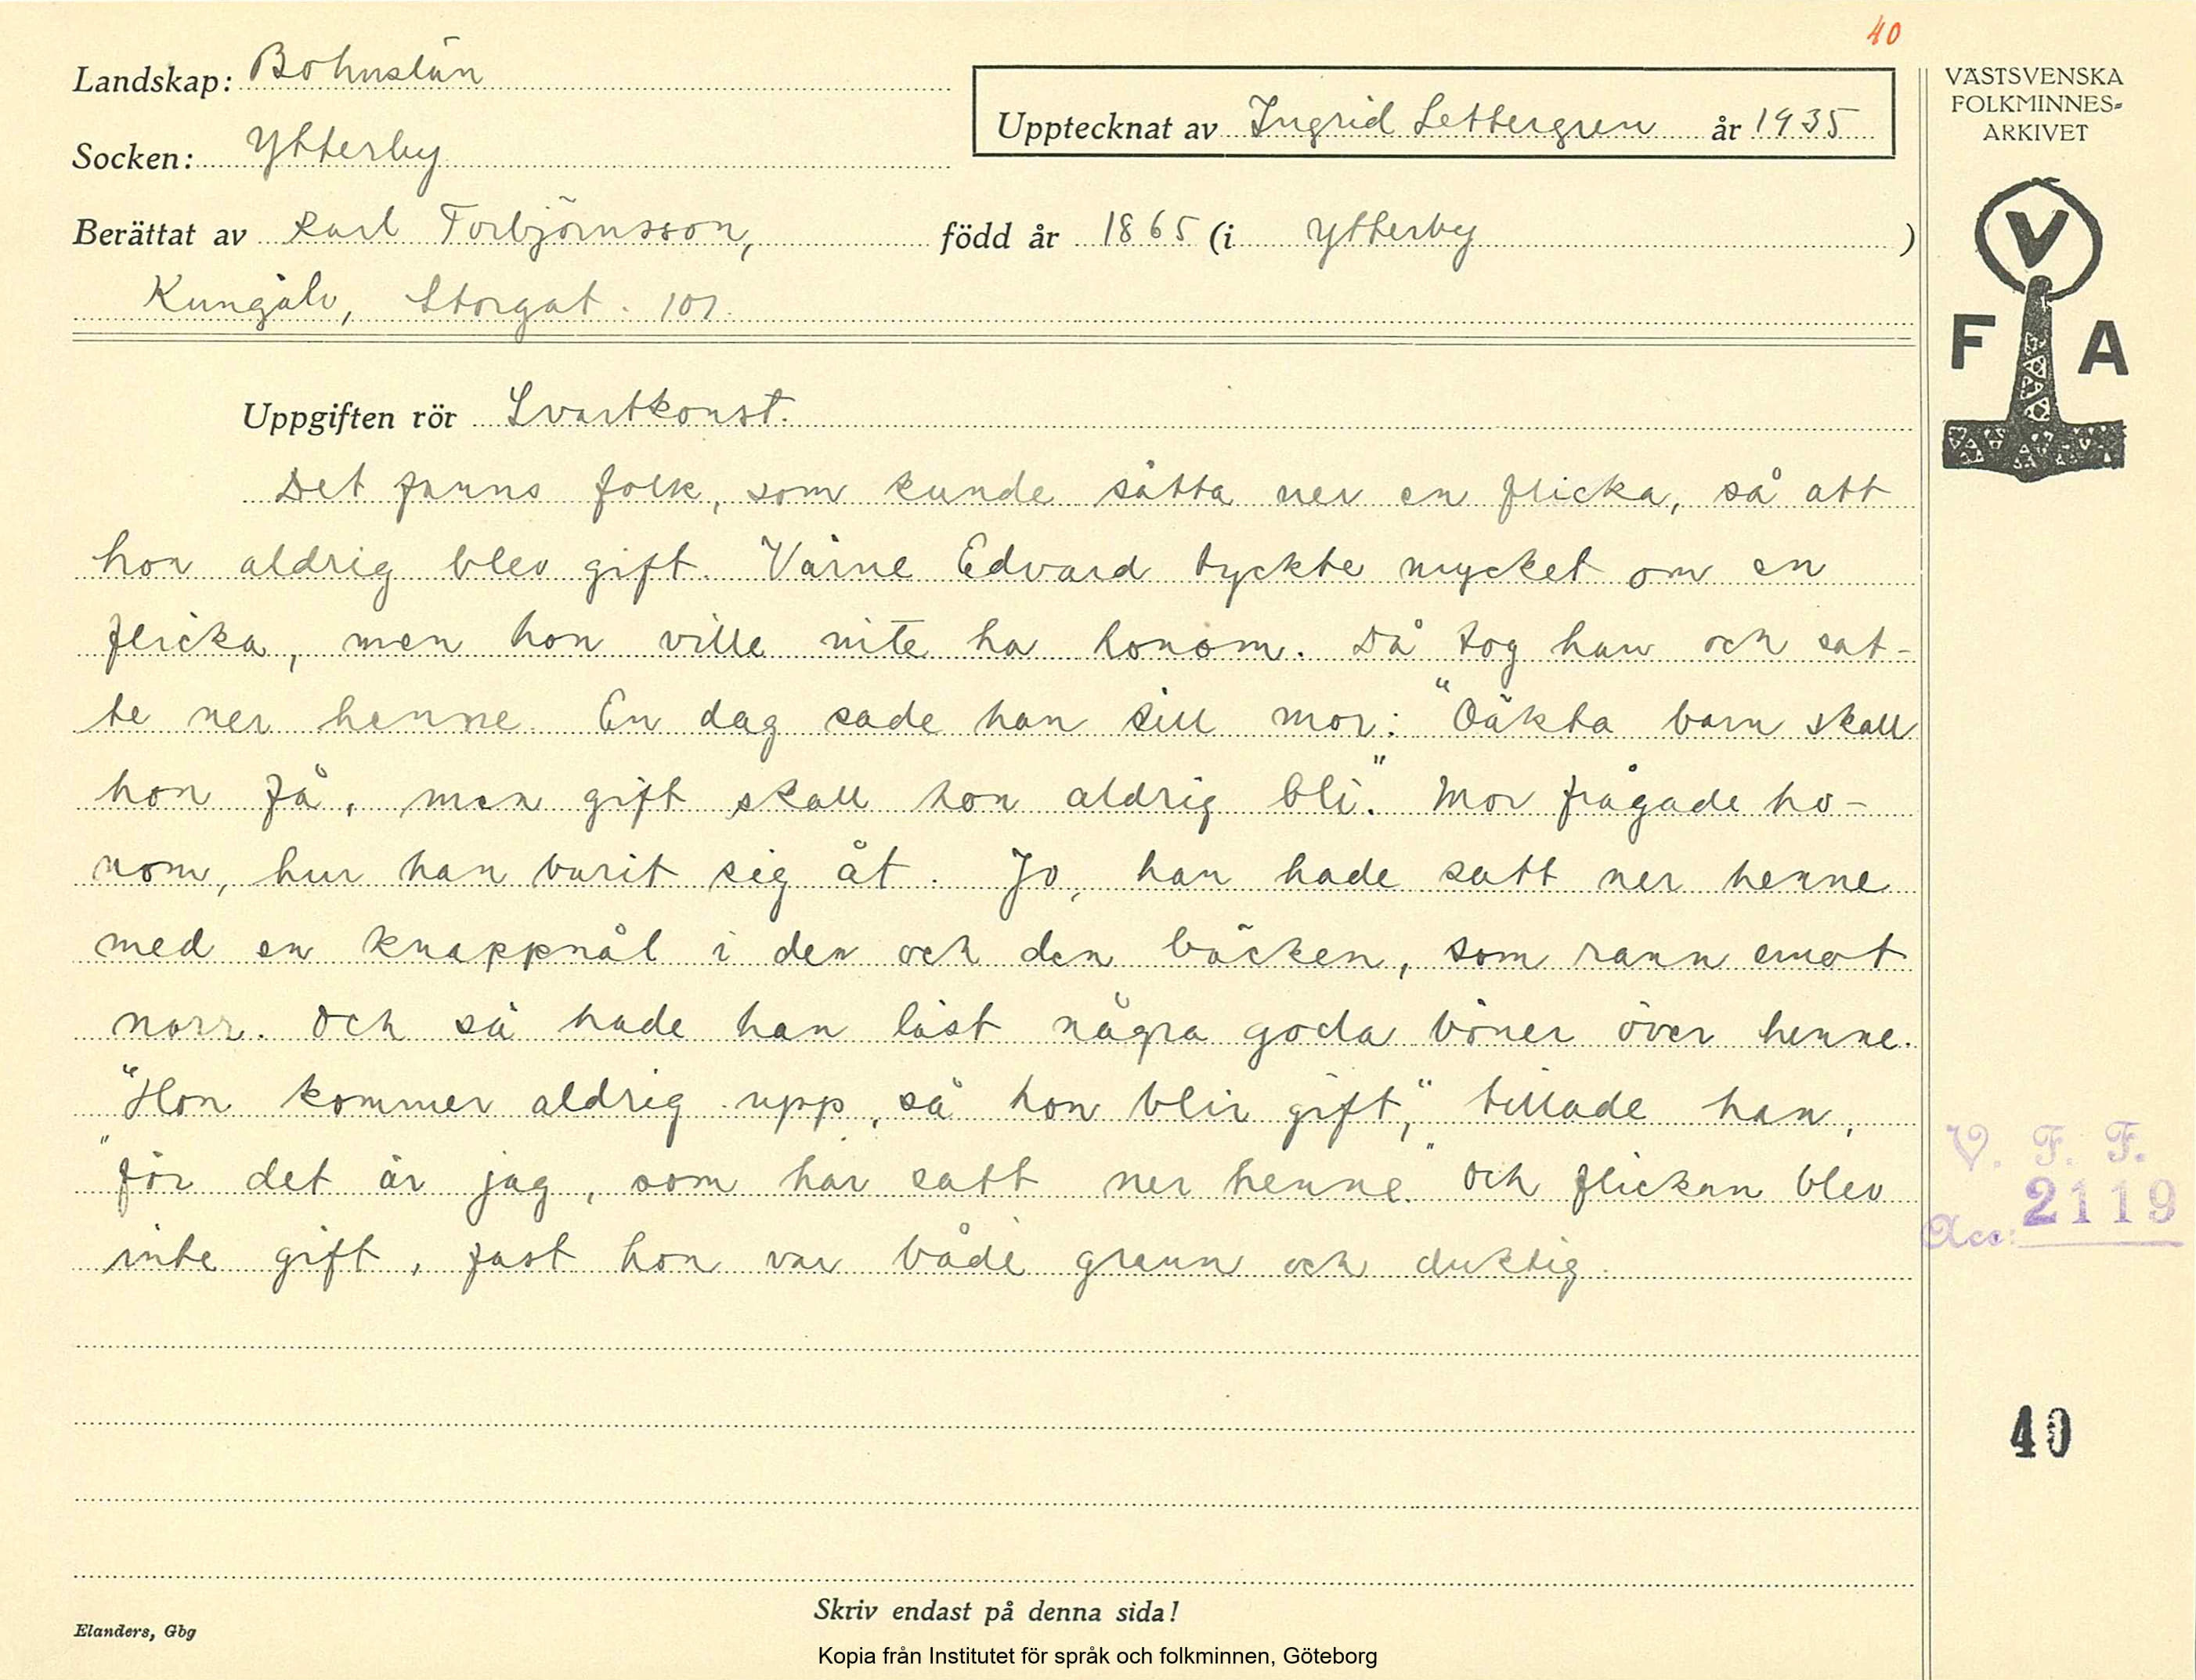 40
Landskap: Bohuslän
Socken: Ytterby
Upptecknat av Ingrid Settergren år 1935
Berättat av Karl Torbjörnsson, född år 1865 (i Ytterby)
Kungälv, Storgat. 101.
VÄSTSVENSKA
FOLKMINNES-
ARKIVET
V
F A
Uppgiften rör Svartkonst.
Det fanns folk, som kunde sätta ner en flicka, så att
hon aldrig blev gift. Värne Edvard tyckte mycket om en
flicka, men hon ville inte ha honom. Då tog han och sat-
te ner henne. En dag sade han till mor: "Oäkta barn skall
hon få, men gift skall hon aldrig bli." Mor frågade ho-
nom, hur han burit sig åt. Jo, han hade satt ner henne
med en knappnål i den och den bäcken, som rann emot
norr. Och så hade han läst några goda böner över henne.
"Hon kommer aldrig upp, så hon blir gift," tillade han,
"för det är jag, som har satt ner henne." Och flickan blev
inte gift, fast hon var både grann och duktig.
V. F. F.
Acc: 2119
40
Skriv endast på denna sida!
Elanders, Gbg
Kopia från Institutet för språk och folkminnen, Göteborg